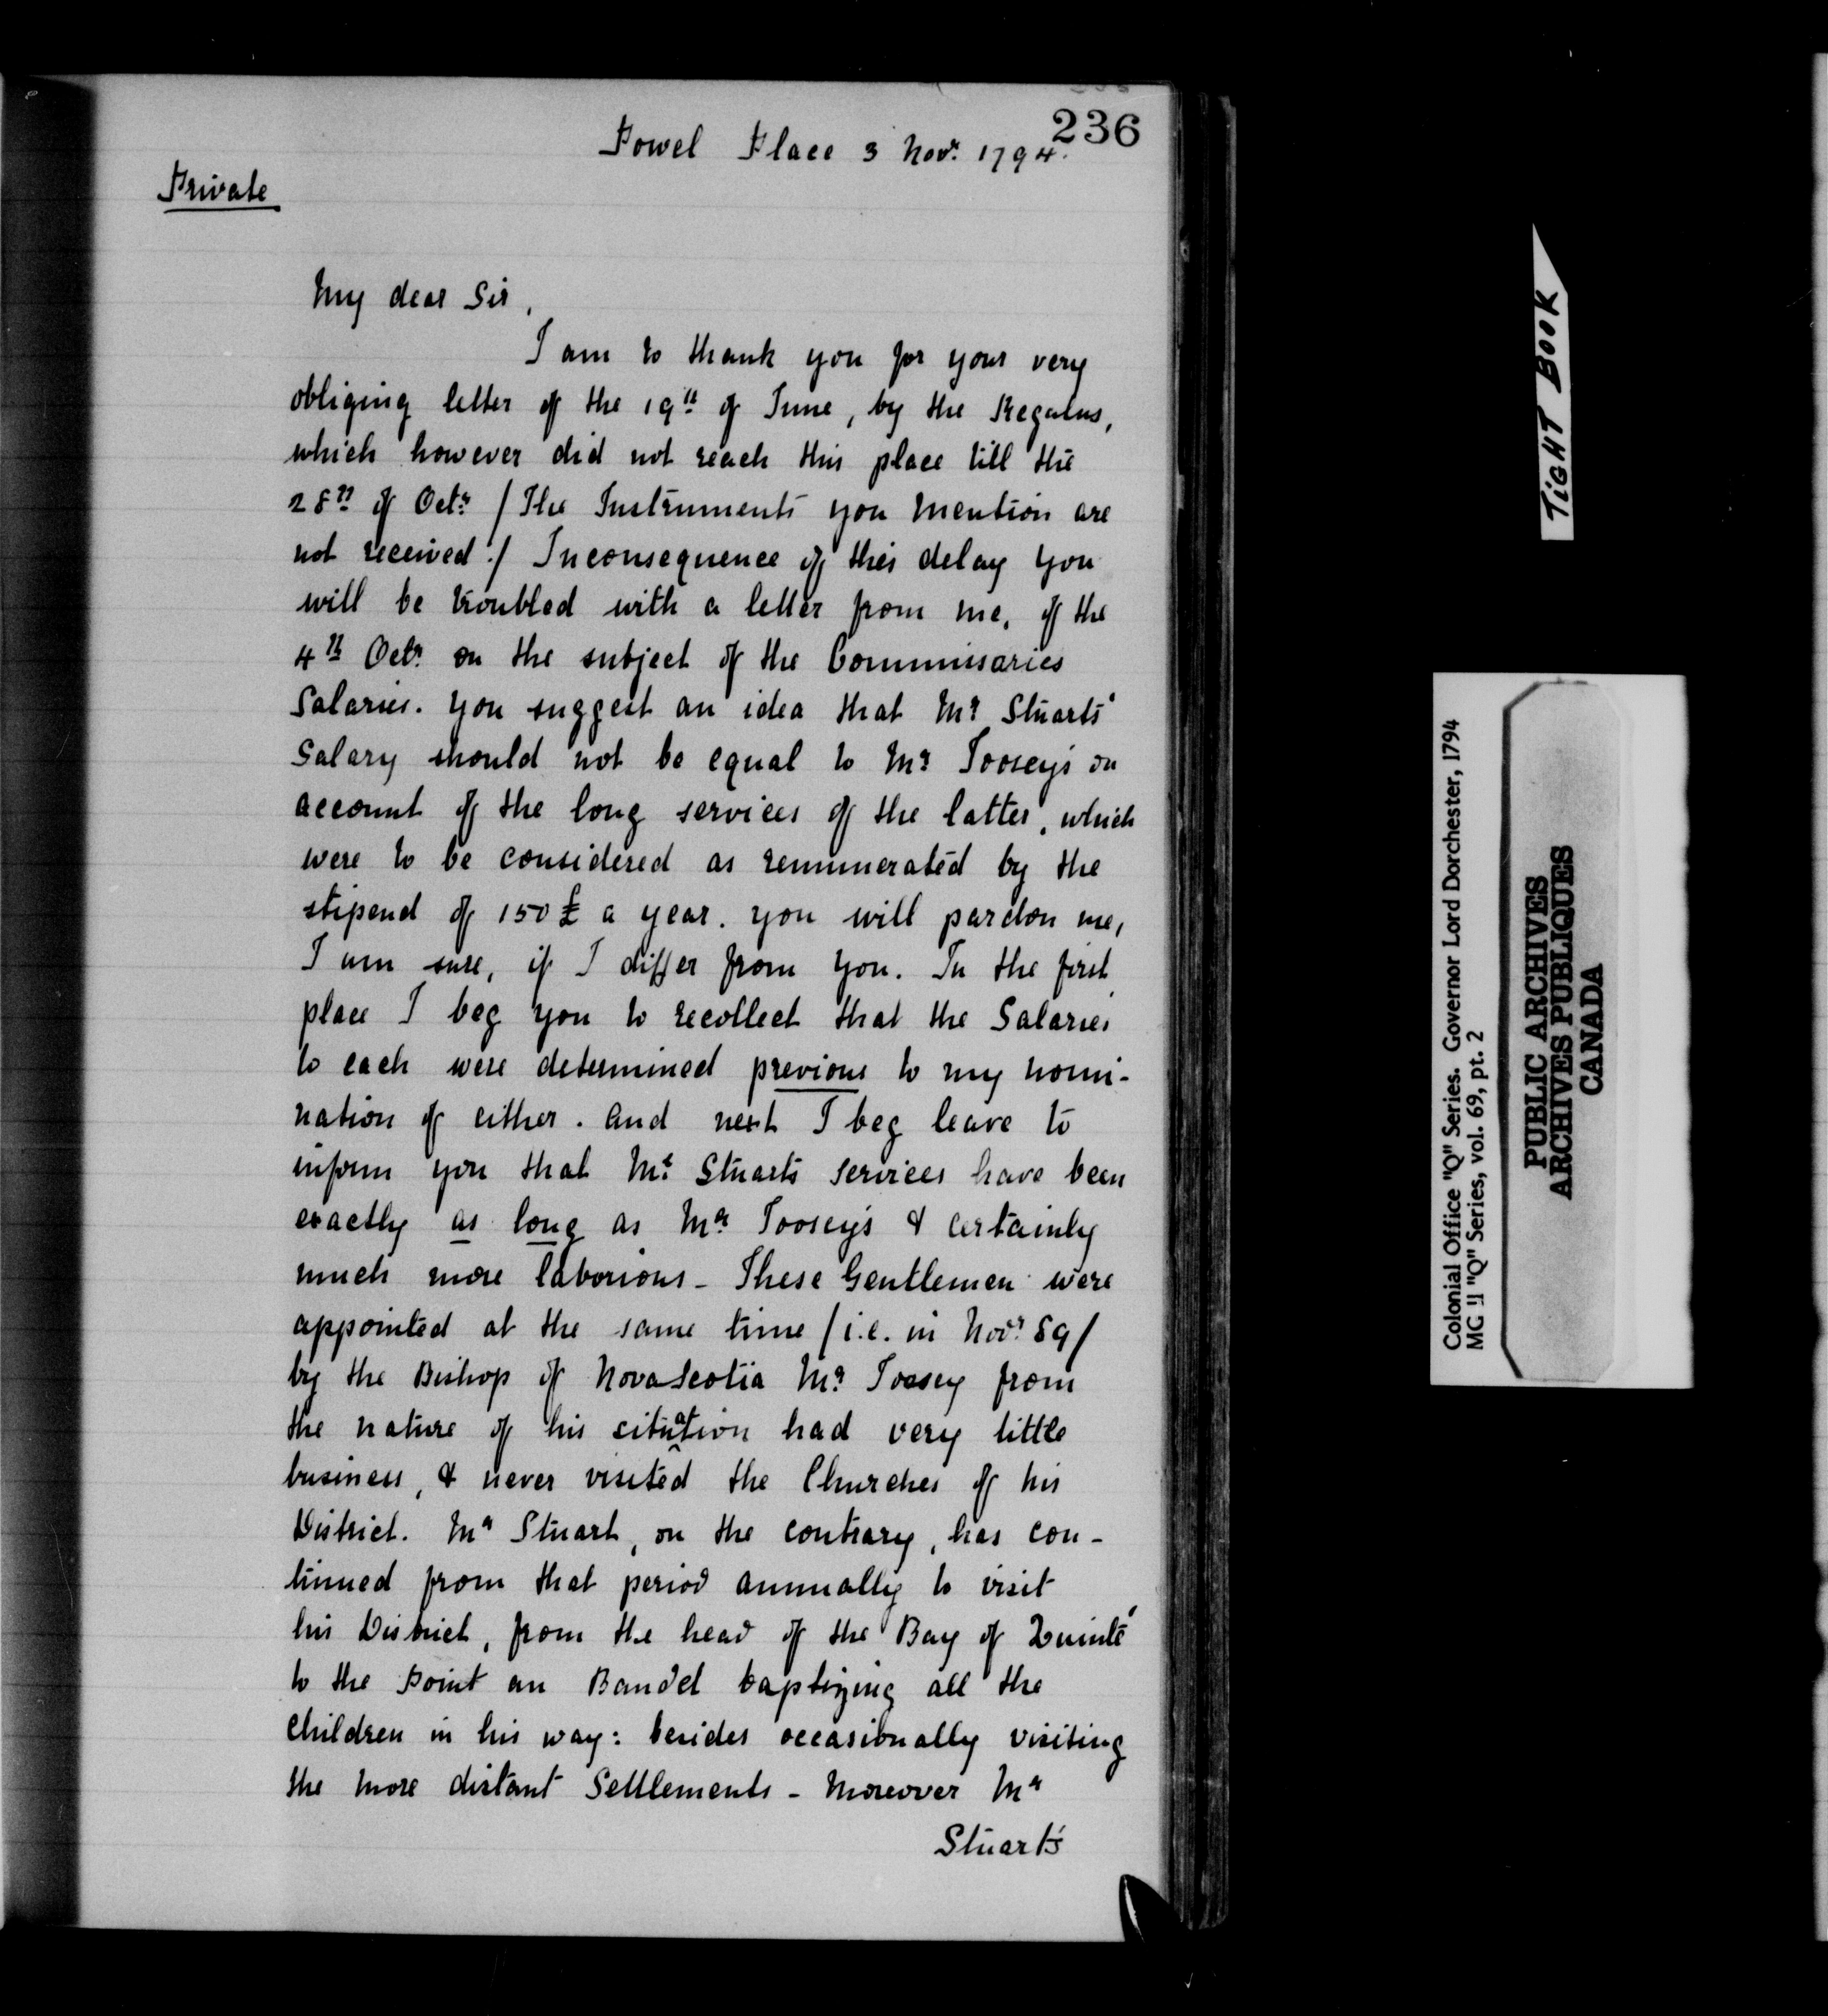 236
Powel Place 3 Novr. 1794.
Private
My dear Sir,
I am to thank you for your very
obliging letter of the 19th of June, by the Regulus,
which however did not reach this place till the
28th of Octr. / The Instruments you mention are
not received :/ Inconsequence of this delay you
will be troubled with a letter from me, of the
4th Octr. on the subject of the Commissaries
Salaries. you suggest an idea that Mr. Stuarts'
Salary should not be equal to Mr. Toosey's on
account of the long services of the latter, which
were to be considered as remunerated by the
stipend of 150 £ a year. you will pardon me,
I am sure, if I differ from you. In the first
place I beg you to recollect that the Salaries
to each were determined previous to my nomi-
nation of either. And next I beg leave to
inform you that Mr. Stuarts services have been
exactly as long as Mr. Toosey's & certainly
much more laborious - These Gentlemen were
appointed at the same time / i.e. in Novr. 89 /
by the Bishop of Nova Scotia Mr. Toosey from
the nature of his situation had very little
business, & never visited the Churches of his
District. Mr Stuart, on the contrary, has con-
tinued from that period annually to visit
his District, from the head of the Bay of Quinté
to the Point au Baudet baptizing all the
Children in his way: besides occasionally visiting
the more distant Settlements - Moreover Mr
Stuart's
TIGHT BOOK
Colonial Office "Q" Series. Governor Lord Dorchester, 1794
MG 11 "Q" Series, vol. 69, pt. 2
PUBLIC ARCHIVES
ARCHIVES PUBLIQUES
CANADA